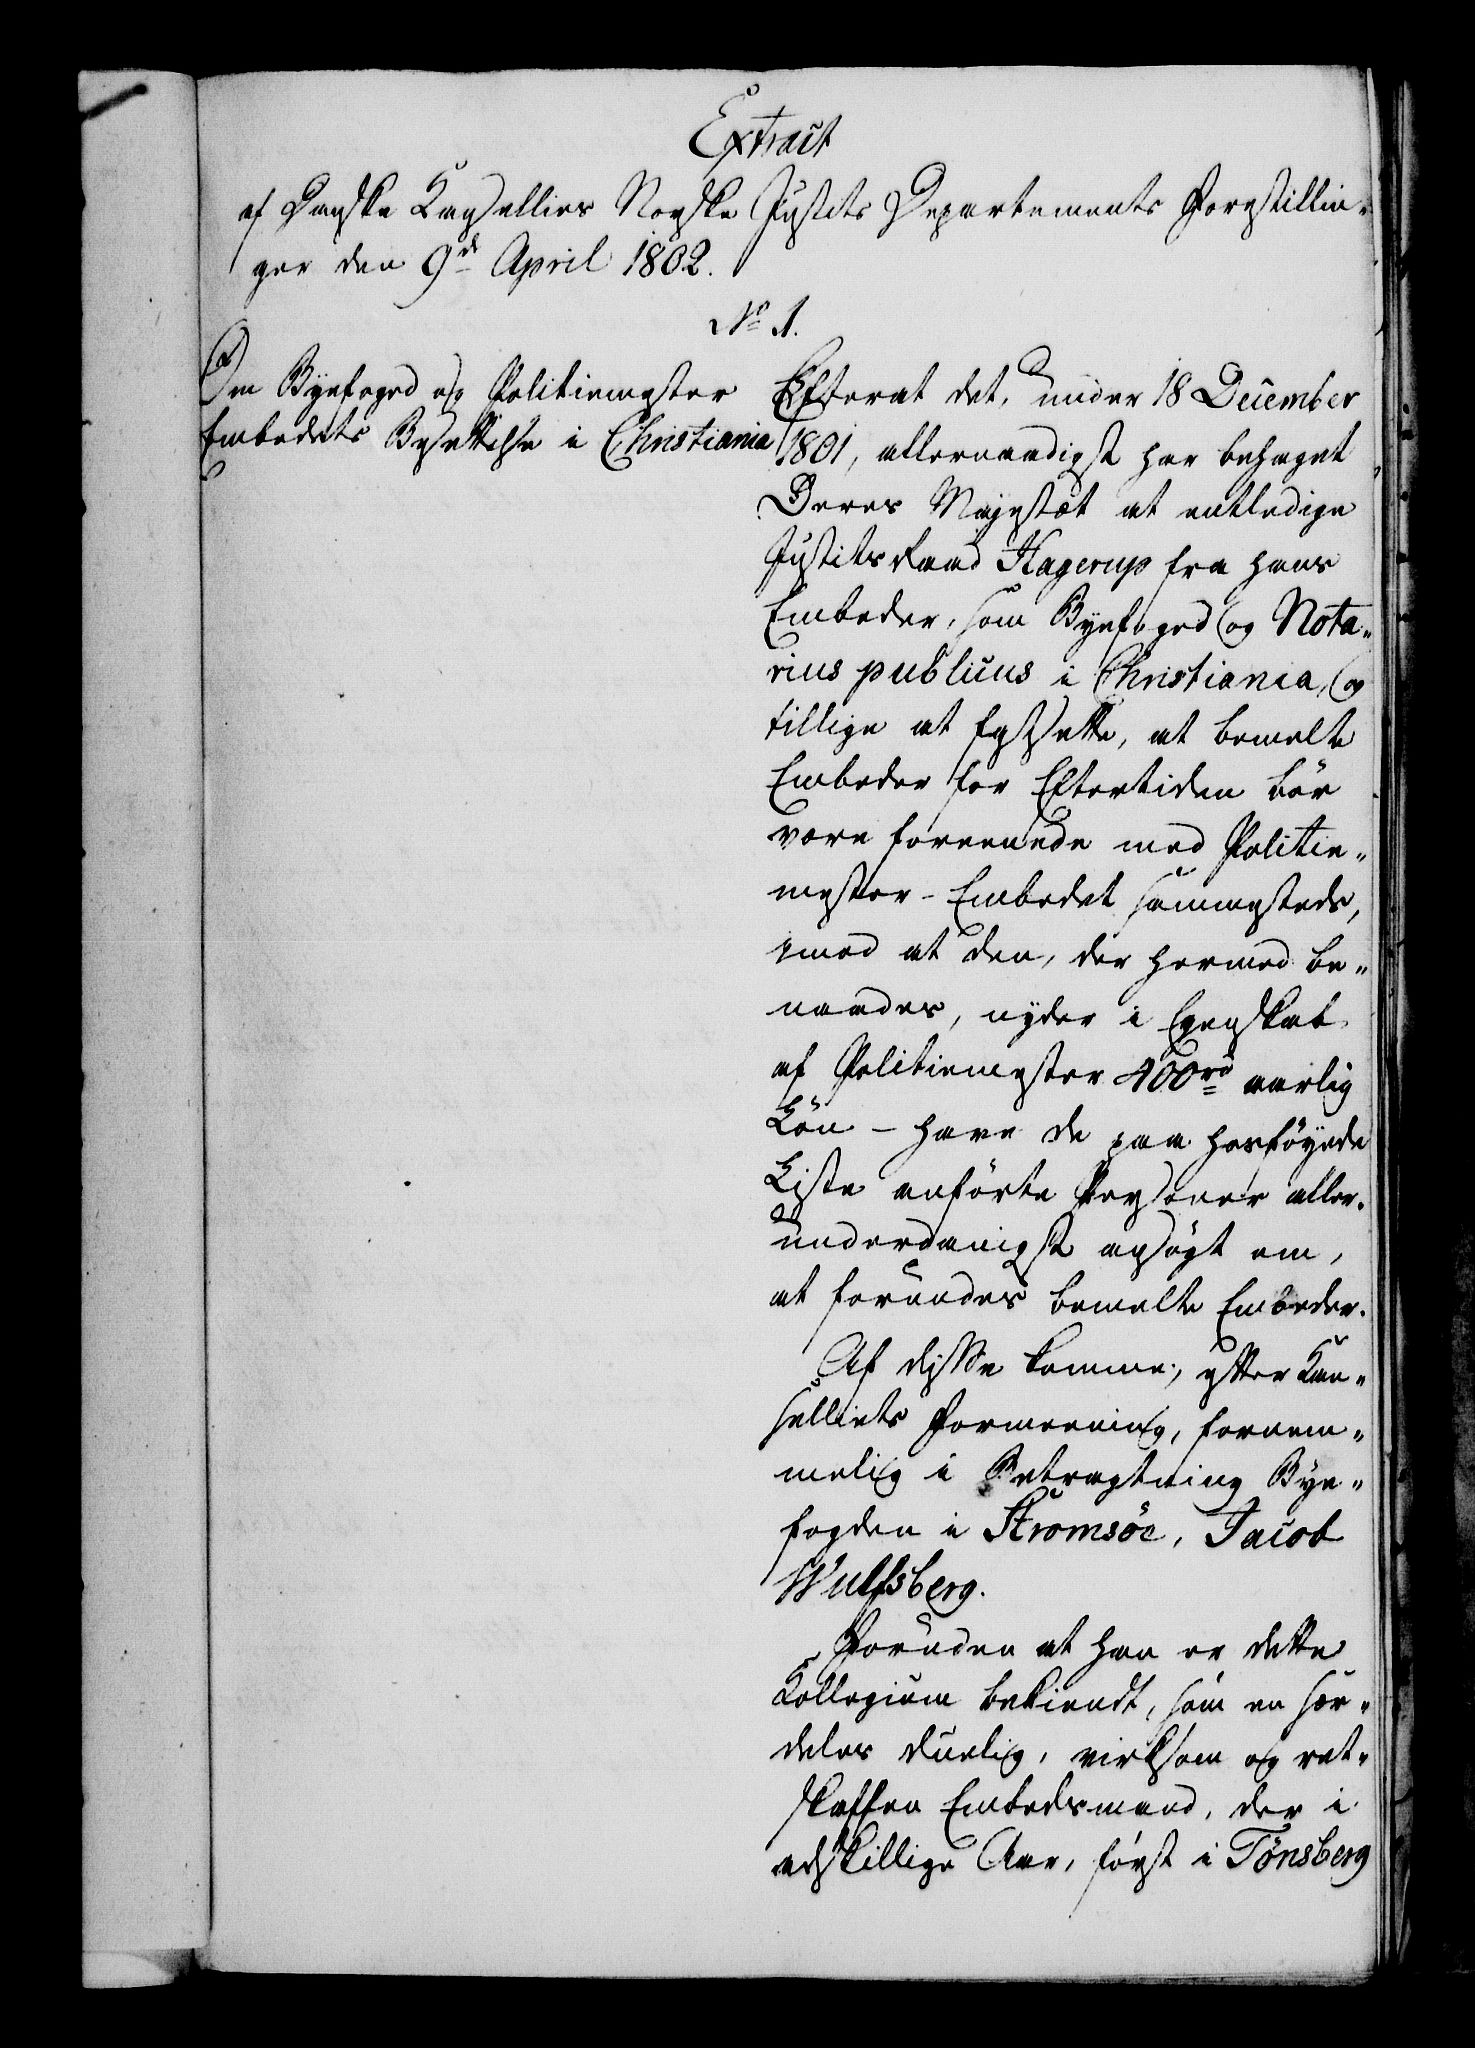 Extract
af Danske Kanselliets Norske Justits Departements Forestillin-
ger den 9de April 1802.
No 1.
Om Byefoged og Politiemester
Embedets Besættelse i Christiania
Efterat det, under 18 December
1801, allernaadigst har behaget
Deres Majestæt at entledige
Justitsraad Hagerup fra hans
Embeder, som Byefoged og Nota-
rius publicus i Christiania, og
tillige at fastsætte, at bemelte
Embeder for Eftertiden bör
være foreenede med Politie-
mester-Embedet sammesteds,
imod at den, der hermed be-
naades, nyder i Egenskab
af Politiemester 400rd aarlig
Lön - have de paa hosföyede
Liste anförte Personer aller-
underdanigst ansögt om,
at forundes bemelte Embeder.
Af disse komme, efter Kan-
selliets Formeening, fornem-
melig i Betragtning Bye-
fogden i Strömsöe, Jacob
Wulfsberg.
Foruden at han er dette
Kollegium bekiendt, som en sær-
deles duelig, virksom og ret-
skaffen Embedsmand, der i
adskillige Aar, först i Tönsberg